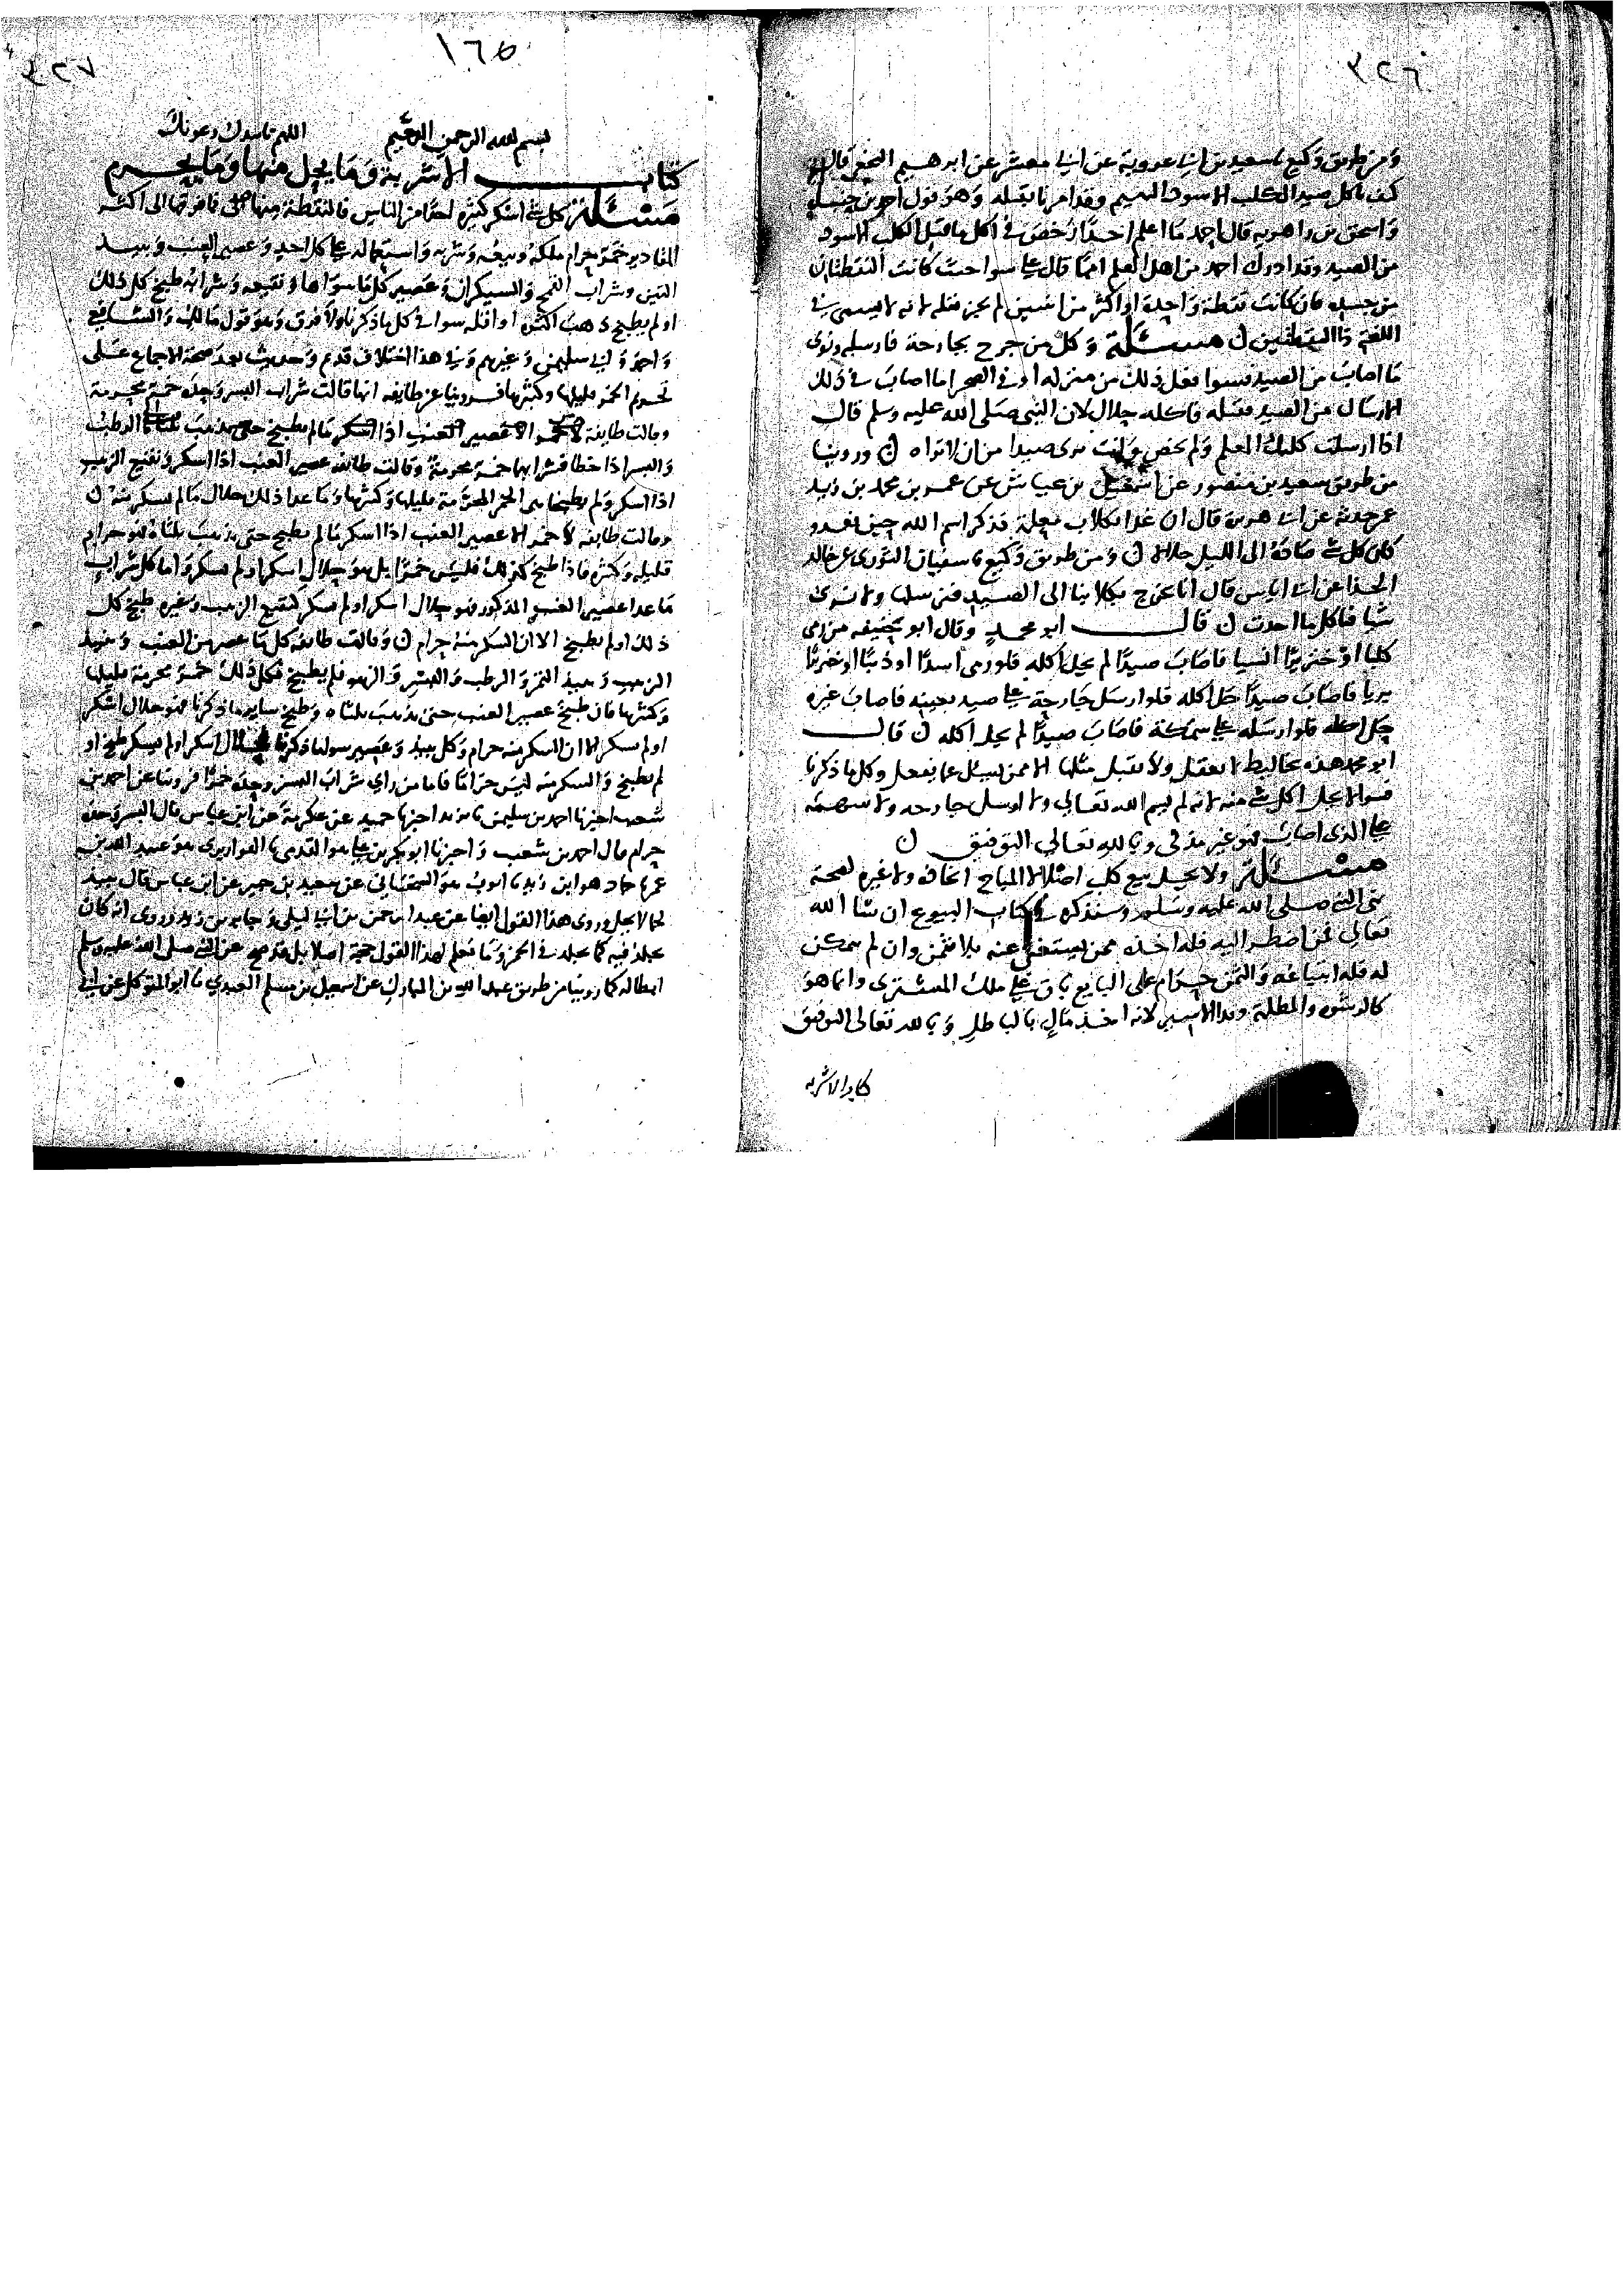 ٣٢٦
ومن طريق وكيع نا سعيد بن ابي عروبة عن ابي معشر عن ابرهيم النخعي قال
كف ناكل صيد الكلب الاسود البهيم وقد امرنا بقتله وهو قول احمد بن حنبل
واسحق بن راهويه قال احمد ما اعلم احدا رخص في اكل ما قتل الكلب الاسود
من الصيد وقد ادرك احمد من اهل العلم امما قال علي سوا حيث كانت النقطتان
من جسده فان كانت نقطة واحدة او اكثر من اثنتين لم يجز قتله لانه لا يسمى في
اللغة ذا النقطتين ن مسئلة وكل من جرح بجارحة فارسله ونوى
ما اصاب من الصيد فسوا فعل ذلك من منزله او في الصحرا ما اصاب في ذلك
الارسال من الصيد فقتله فاكله حلال لان النبي صلى الله عليه وسلم قال
اذا ارسلت كلبك المعلم ولم يخص وانت ترى صيدا من ان لا تراه ن وروينا
من طريق سعيد بن منصور عن اسمعيل بن عياش عن عمر بن محمد بن زيد
عن حدثه عن ابي هريرة قال ان غدا بكلاب معلمة فذكر اسم الله حين يغدو
كان كل شي صاده الى الليل حلالا ن ومن طريق وكيع نا سفيان الثوري عن خالد
الحذا عن ابي اياس قال انا نخرج بكلابنا الى الصيد فنرسلها ولا نرى
شيا فاكل ما اخذت ن قال ابو محمد وقال ابو حنيفه من رمى
كلبا او خنزيرا انسيا فاصاب صيدا لم يحل اكله فلو رمى اسدا او ذيبا او خنزيرا
بريا فاصاب صيدا حل اكله فلو ارسل جارحة على صيد بعينه فاصاب غيره
حل اكله فلو ارسله على سمكة فاصاب صيدا لم يحل اكله ن قال
ابو محمد هذه تخاليط لا تعقل ولا تقبل مثلها الا ممن لا يسئل عما يفعل وكل ما ذكرنا
فسوا لا يحل اكل شي منه لانه لم يسم الله تعالى ولا ارسل جارحه ولا سهمه
على الذى اصاب فهو غير مذكى وبالله تعالى التوفيق ن
مسئلة ولا يحل بيع كلب اصلا لا المباح اتخاذه ولا غيره لصحة
نهي النبي صلى الله عليه وسلم وسنذكره في كتاب البيوع ان شا الله
تعالى فمن اضطر اليه فله اخذه ممن يستغني عنه بلا ثمن وان لم يمكن
له فله ابتياعه والثمن حرام على البايع باق على ملك المشترى وانما هو
كالرشوه والمظلمة وفدا الاسير لانه اخذ مال بالباطل وبالله تعالى التوفيق
كتاب الاشربه
٣٢٧
١٦٥
بسم الله الرحمن الرحيم اللهم تاييدك وعونك
كتاب الاشربة وما يحل منها وما يحرم
مسئلة كل شي اسكر كثيره احدا من الناس فالنقطة منها فما فوقها الى اكثر
المقادير خمر حرام ملكه وبيعه وشربه واستعماله على كل احد وعصير العنب ونبيذ
التين وشراب القمح والسيكران وعصير كل ما سواها ونقيعه وشرابه طبخ كل ذلك
او لم يطبخ ذهب اكثره او اقله سوا في كل ما ذكرنا ولا فرق وهو قول مالك والشافعي
واحمد وابي سليمن وغيرهم وفي هذا اختلاف قديم وحديث بعد صحة الاجماع على
تحريم الخمر قليلها وكثيرها فروينا عن طايفه انها قالت شراب البسر وحده خمر محرمة
وقالت طايفة لا خمر الا عصير العنب اذا اسكر ما لم يطبخ حتى يذهب ثلثاه الرطب
والبسر اذا خلطا فشرابهما خمر محرمة وقالت طايفه عصير العنب اذا اسكر ونقيع الزبيب
اذا اسكر ولم يطبخا هي الخمر المحرمة قليلها وكثيرها وما عدا ذلك حلال ما لم يسكر منه ن
وقالت طايفه لا خمر الا عصير العنب اذا اسكر ما لم يطبخ حتى يذهب ثلثاه فهو حرام
قليله وكثيره فاذا طبخ كذلك فليس خمرا بل هو حلال اسكر او لم يسكر واما كل شراب
ما عدا عصير العنب المذكور فهو حلال اسكر او لم يسكر كنقيع الزبيب وغيره طبخ كل
ذلك او لم يطبخ الا ان السكر منه حرام ن وقالت طايفه كل ما عصر من العنب ونبيذ
الزبيب ونبيذ التمر والرطب والبسر والزهو فلم يطبخ فكل ذلك خمر محرمة قليلها
وكثيرها فان طبخ عصير العنب حتى يذهب ثلثاه وطبخ ساير ما ذكرنا فهو حلال اسكر
او لم يسكر الا ان السكر منه حرام وكل نبيذ وعصير سوى ما ذكرنا فحلال اسكر او لم يسكر طبخ او
لم يطبخ والسكر منه ليس حراما فاما من راى شراب البسر وحده خمرا فروينا عن احمد بن
شعيب اخبرنا احمد بن سليمن نا يزيد اخبرنا حميد عن عكرمة عن ابن عباس قال البسر وحده
حرام قال احمد بن شعيب واخبرنا ابو بكر بن علي هو المقدمي نا القواريرى هو عبيد الله بن
عمر نا حماد هو ابن زيد نا ايوب هو السختياني عن سعيد بن جبير عن ابن عباس قال نبيذ
لا يحل وروى هذا القول ايضا عن عبد الرحمن بن ابي ليلى وجابر بن زيد وروى انه كان
يجلد فيه كما يجلد في الخمر وما نعلم لهذا القول حجة اصلا بل قد صح عن النبي صلى الله عليه وسلم
ابطاله كما روينا من طريق عبد الله بن المبارك عن اسمعيل بن مسلم العبدي نا ابو المتوكل عن ابي